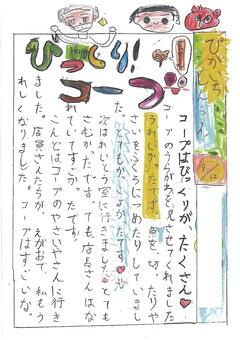 ぴかいち
しんぶん
9/12
びっくり!
コープ!!
コープはびっくりが、たくさん♥
コープのうらがわを見させてくれました
うれしかったです。魚を、切ったりや
さいをふくろにつめたりしていまし
た。とてもかっこよかったです♥
次はれいとう室に行きました。とても
さむかったです。でも、店長さんはな
れていてすごかったです。
こんどはコープのやさいやさんに行き
ました。店員さんたちが、えがおで、私もう
れしくなりました。コープはすごいな。